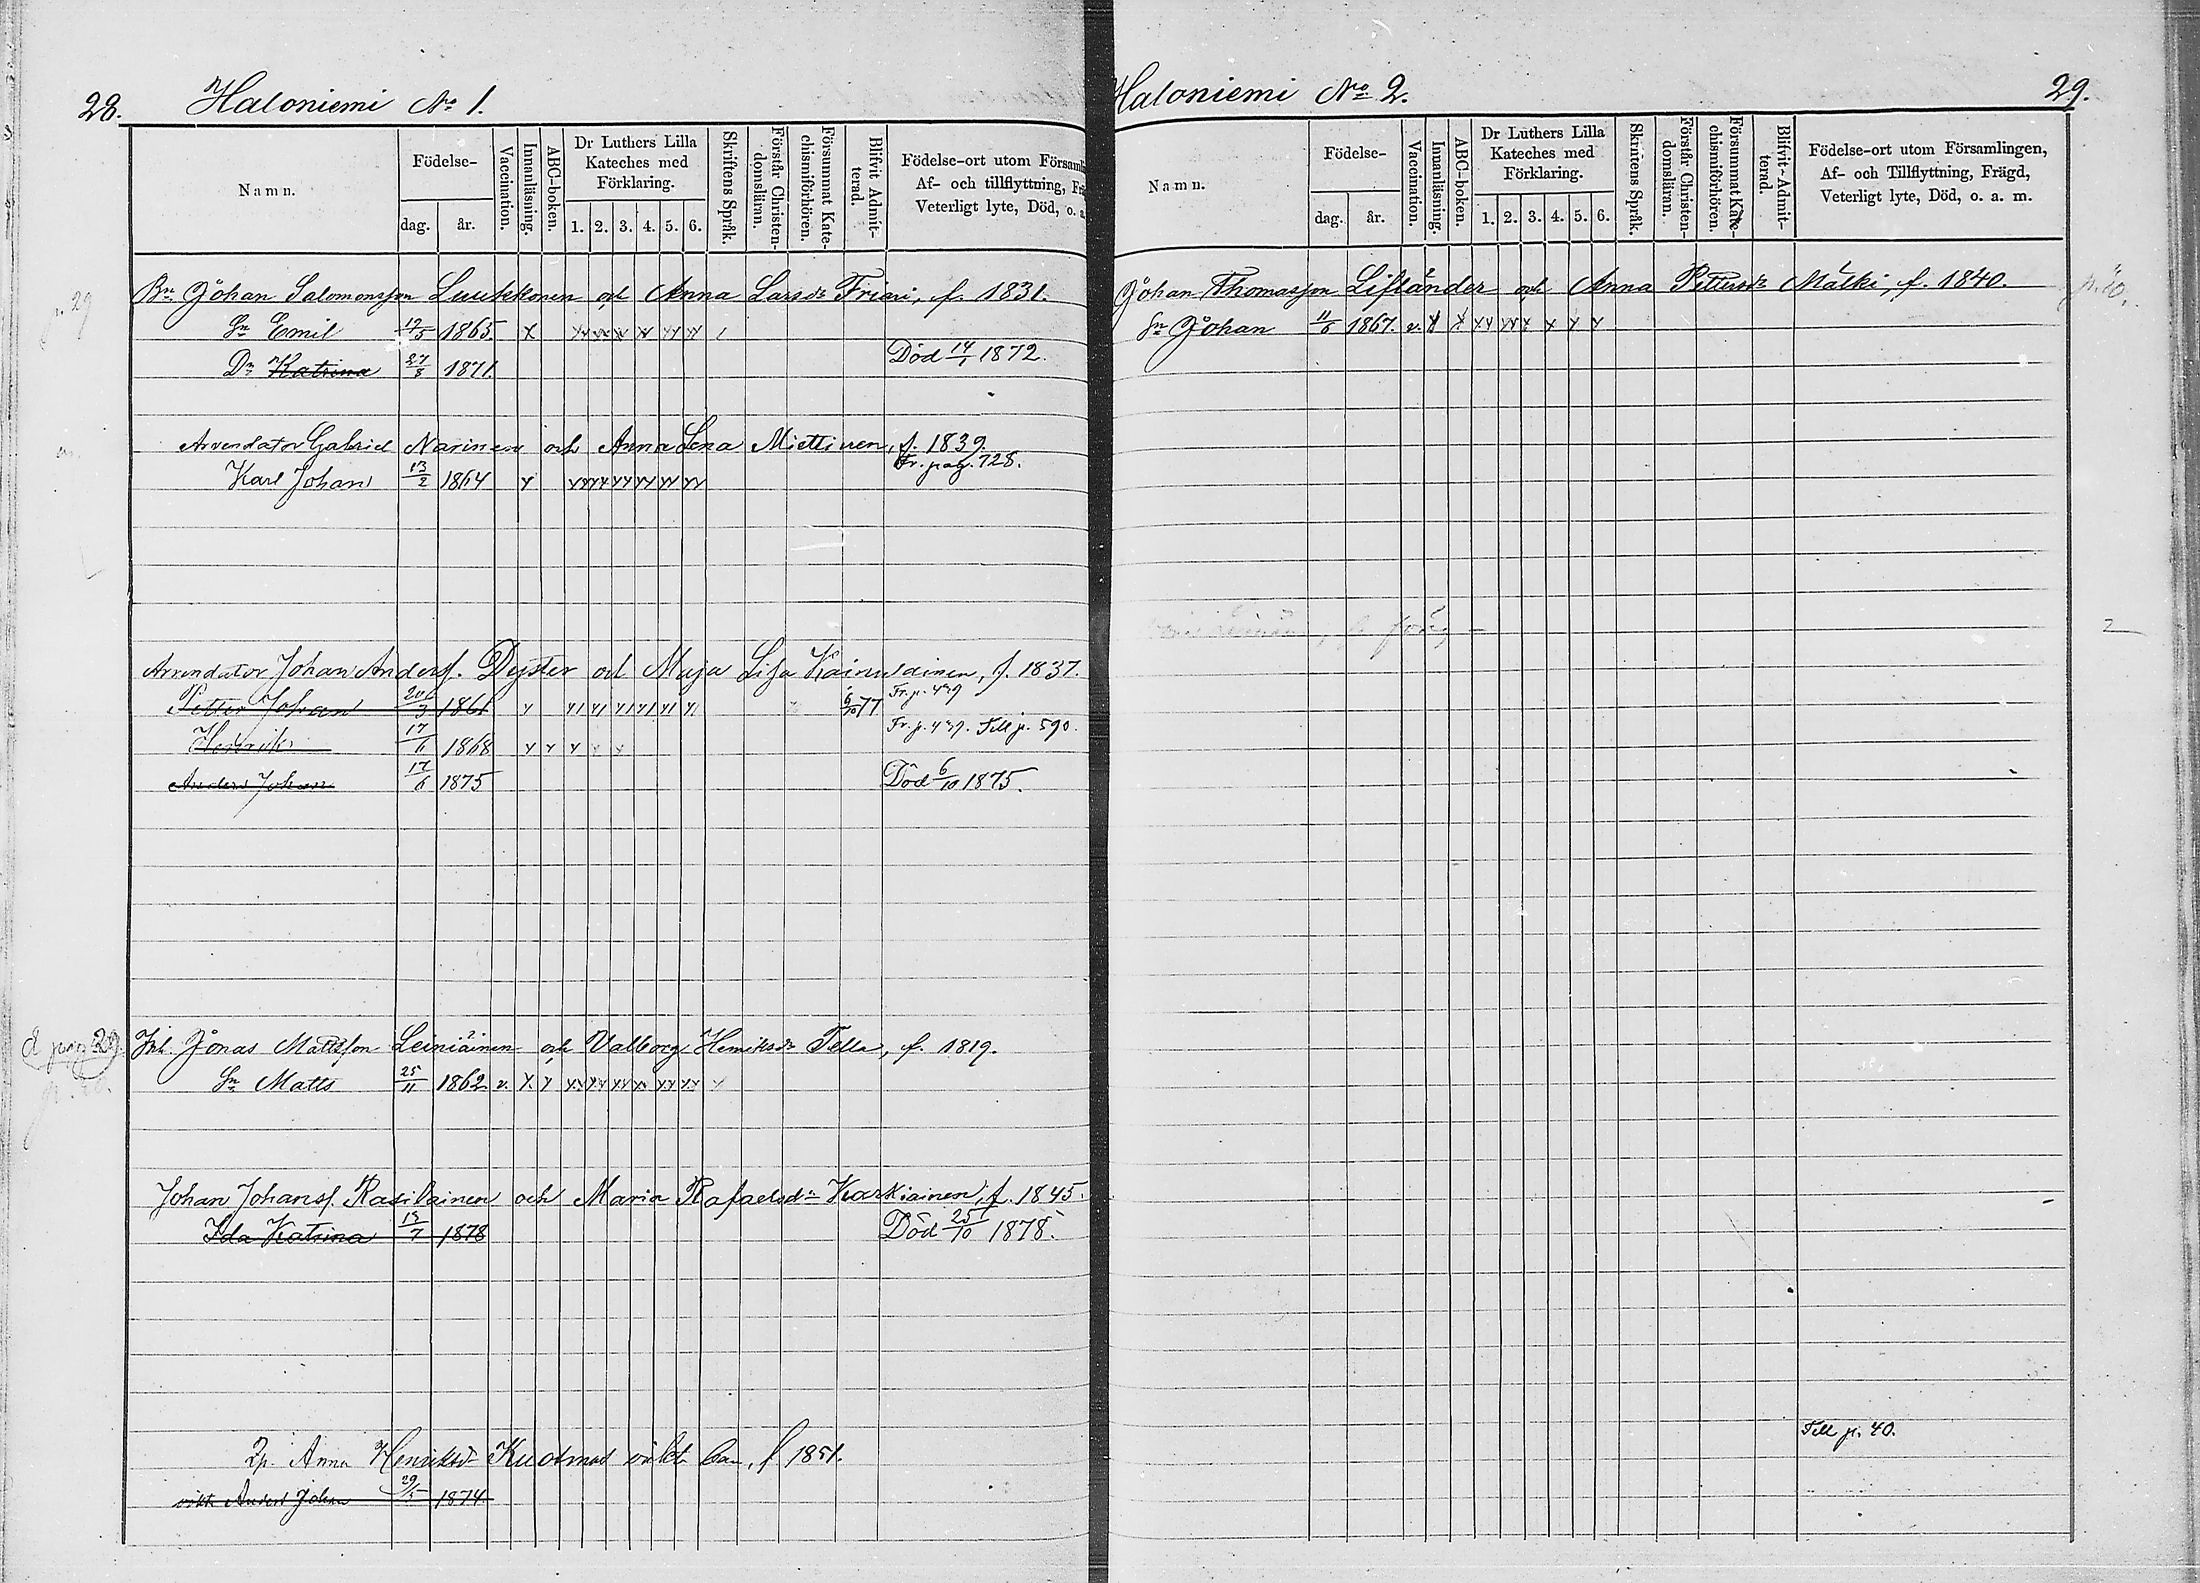 28. Haloniemi No 1.
Namn.
Födelse-
dag.
år.
Vaccination.
Innanläsning.
ABC-boken.
Dr Luthers Lilla
Kateches med
Förklaring.
1. 2. 3. 4. 5. 6.
Skriftens Språk.
Förstår Christen-
domsläran.
Försummat Kate-
chismiförhören.
Blifvit Admit-
terad.
Födelse-ort utom Församl
Af- och tillflyttning, Fr
Veterligt lyte, Död, o. a.
Bn. Johan Salomonsson Luukkonen och Anna Larsdr Friari, f. 1831.
Sn Emil 1865. x
Dr Katrina 27/8 1871. Död 14/1 1872.
Arrendator Gabriel Narinen och Anna Lena Miettinen, f. 1839.
Karl Johan 13/2 1864 Fr. pag. 728.
Arrendator Johan Anderss. Dyster och Maja Lisa Kainulainen, f. 1837.
Petter Johan 1861 6/10 77 Fr. p. 439
Henrik 17/6 1868 Fr. p. 439. Till p. 590.
Anders Johan 17/6 1875 Död 6/10 1875.
Inh. Jonas Mattsson Leiniäinen och Valborg Henriksdr Tella, f. 1819.
Sn Matts 25/11 1862 v.
Johan Johanss. Rasilainen och Maria Rafaelsdr Karkiainen, f. 1845.
Ida Katrina 1878 Död 25/10 1878.
Anna Henriksdr f 1851.
Anders Johan 1874.
Haloniemi No 2. 29.
Namn.
Födelse-
dag.
år.
Vaccination.
Innanläsning.
ABC-boken.
Dr Luthers Lilla
Kateches med
Förklaring.
1. 2. 3. 4. 5. 6.
Skriftens Språk.
Förstår Christen-
domsläran.
Försummat Kate-
chismiförhören.
Blifvit Admit-
terad.
Födelse-ort utom Församlingen,
Af- och Tillflyttning, Frägd,
Veterligt lyte, Död, o. a. m.
Johan Thomasson Lifländer och Anna Pettersdr Mälki, f. 1840.
Sn Johan 11/6 1867. v.
Till p. 40.